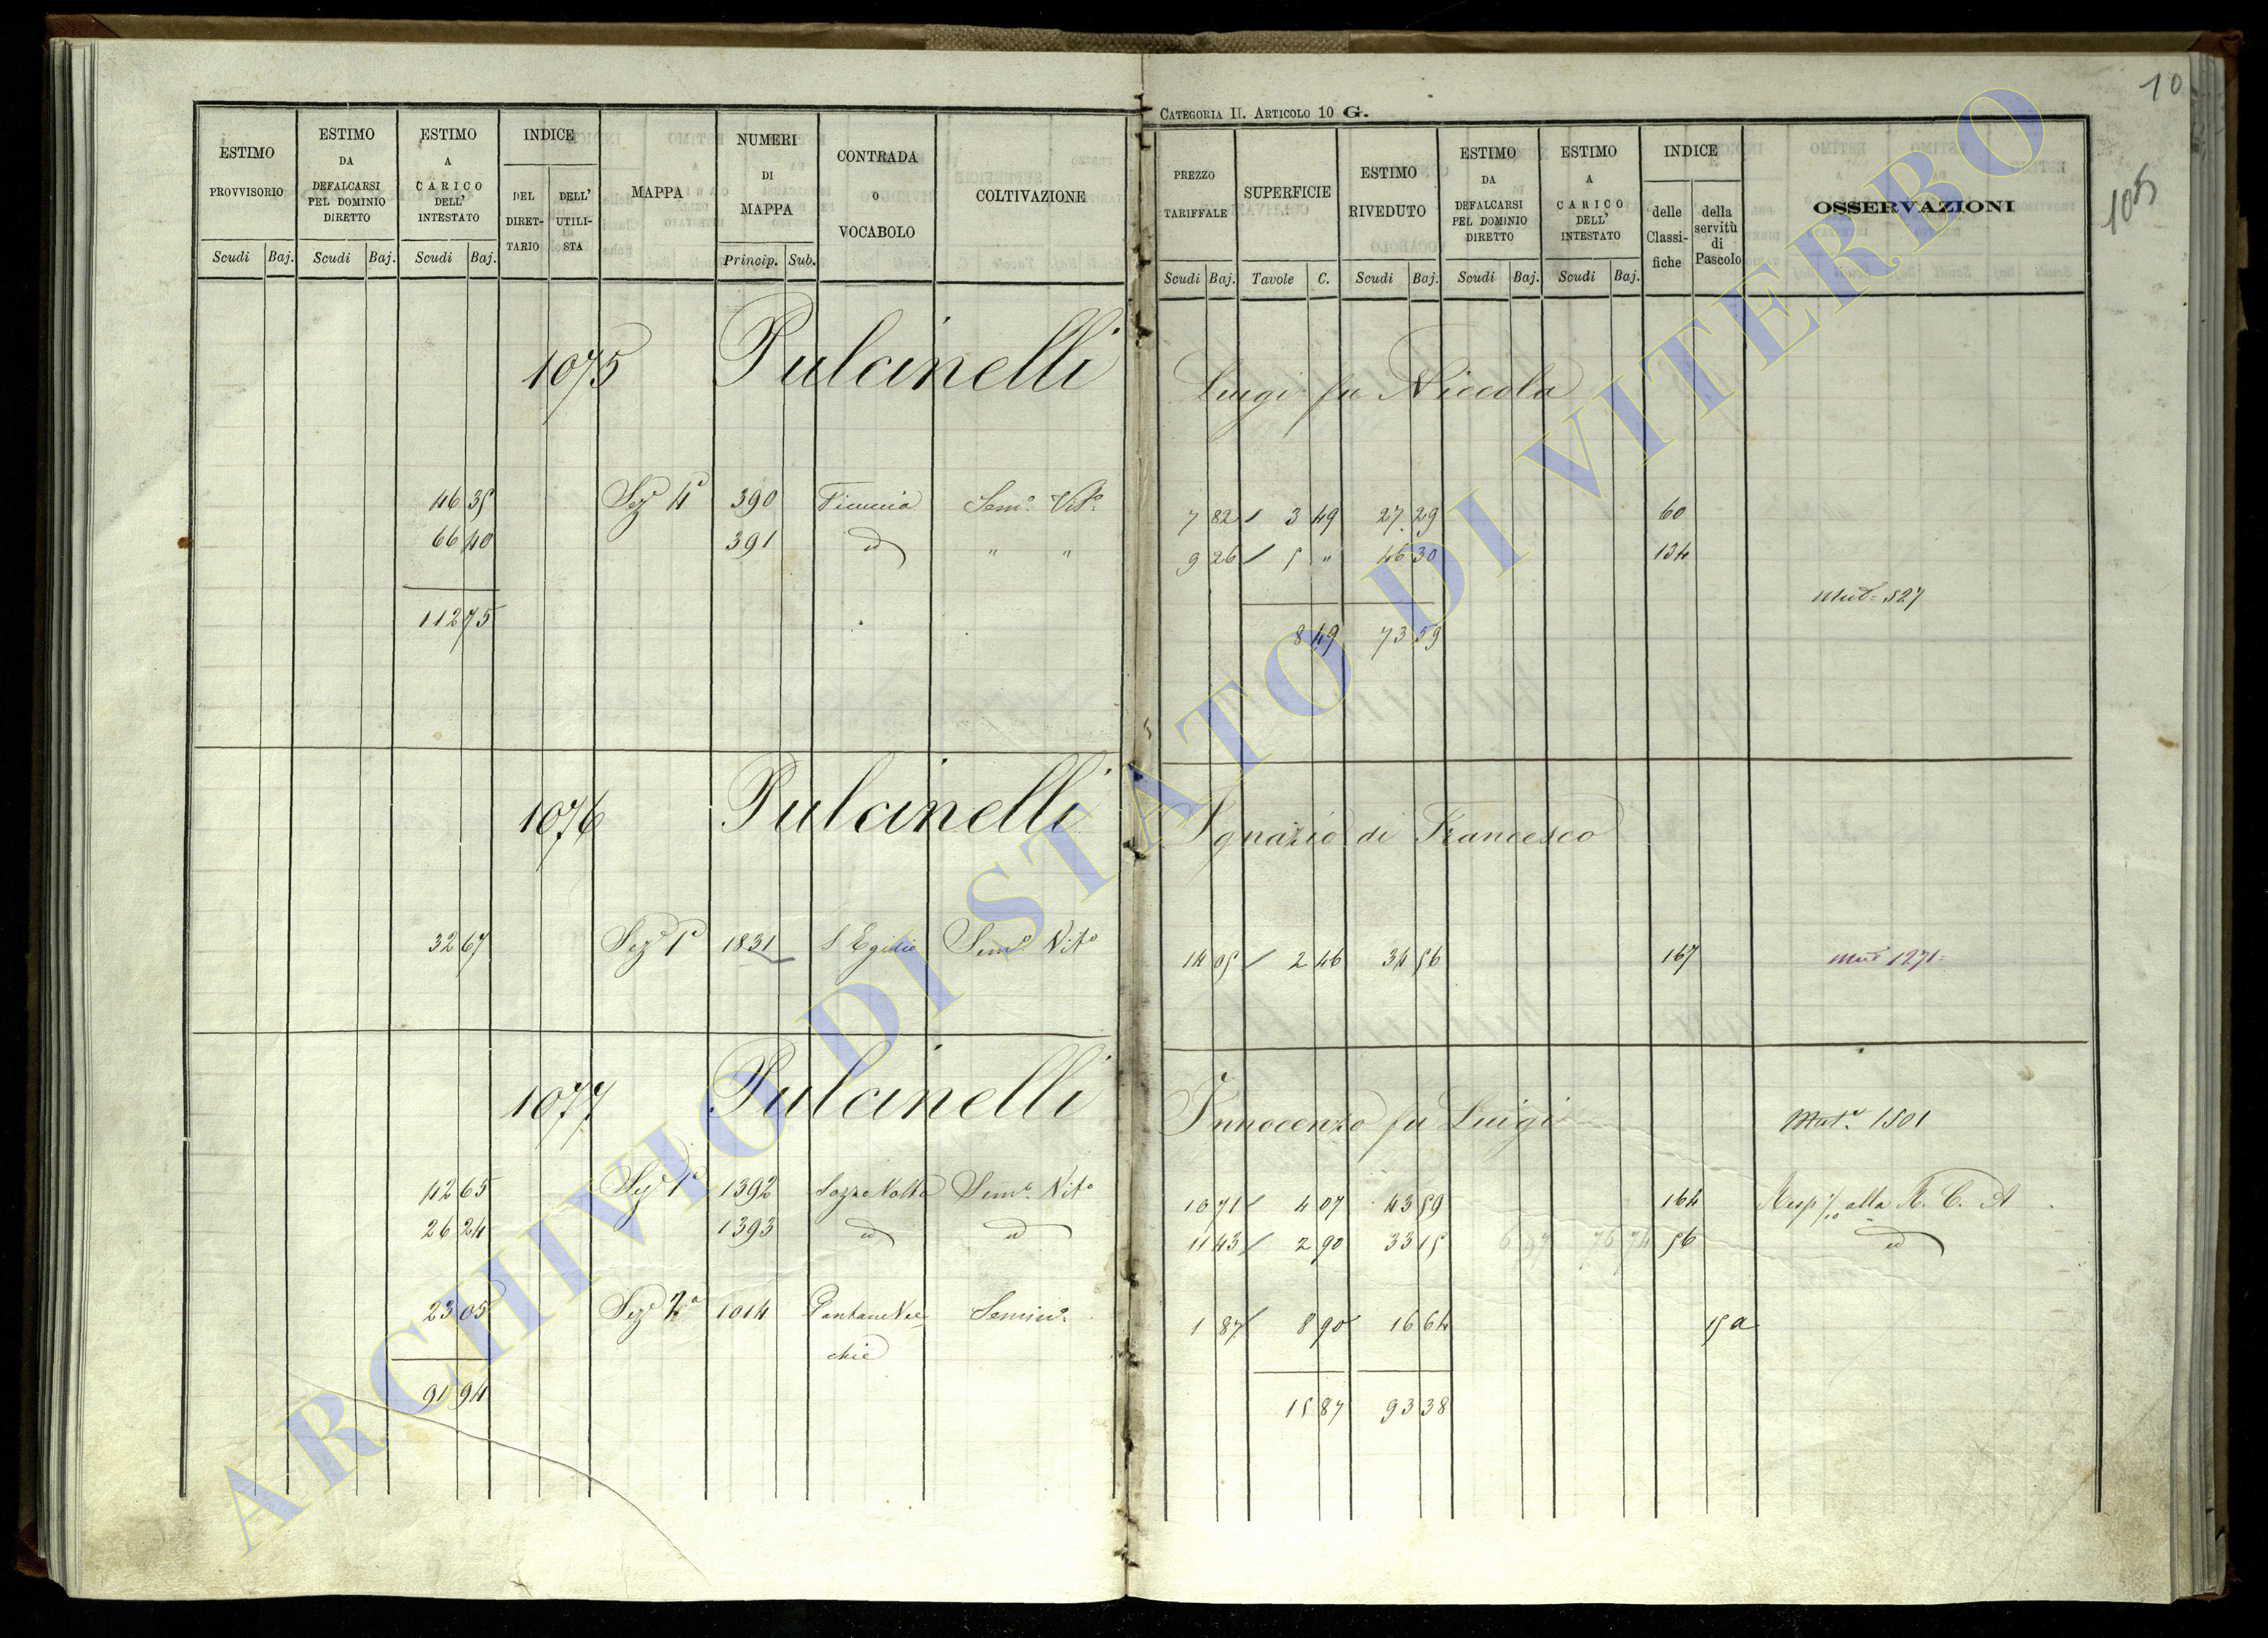 10
105
CATEGORIA II. ARTICOLO 10 G.
ESTIMO PROVVISORIO
ESTIMO DA DEFALCARSI PEL DOMINIO DIRETTO
ESTIMO A CARICO DELL' INTESTATO
INDICE
DEL DIRET-TARIO
DELL' UTILI-STA
MAPPA
NUMERI DI MAPPA
CONTRADA O VOCABOLO
COLTIVAZIONE
Scudi Baj. Scudi Baj. Scudi Baj. Princip. Sub.
PREZZO TARIFFALE
SUPERFICIE
ESTIMO RIVEDUTO
ESTIMO DA DEFALCARSI PEL DOMINIO DIRETTO
ESTIMO A CARICO DELL' INTESTATO
INDICE
delle Classi-fiche
della servitù di Pascolo
OSSERVAZIONI
Scudi Baj. Tavole C. Scudi Baj. Scudi Baj. Scudi Baj.
1075 Pulcinelli Luigi fu Niccola
46 35 Sez 4a 390 Semo. Vito. 7 82 3 49 27 29 60
66 40 391 id " " 9 26 5 " 46 30 134
Mut. 527
112 75 8 49 73 59
1076 Pulcinelli Ignazio di Francesco
32 67 Sez 1a 1831 S Egidio Semo. Vito 14 05 2 46 34 56 167 Mut 1271
1077 Pulcinelli Innocenzo fu Luigi Muta. 1501
42 65 Sez 1a 1392 Semo. Vito 10 71 4 07 43 59 164 Risp 1/10 alla R. C. A
26 24 1393 id id 11 43 2 90 33 15 76 74 56 id
23 05 Sez 2a 1014 Pantane Vec- Semino. 1 87 8 90 16 64 15a
chie
91 94 15 87 93 38
ARCHIVIO DI STATO DI VITERBO